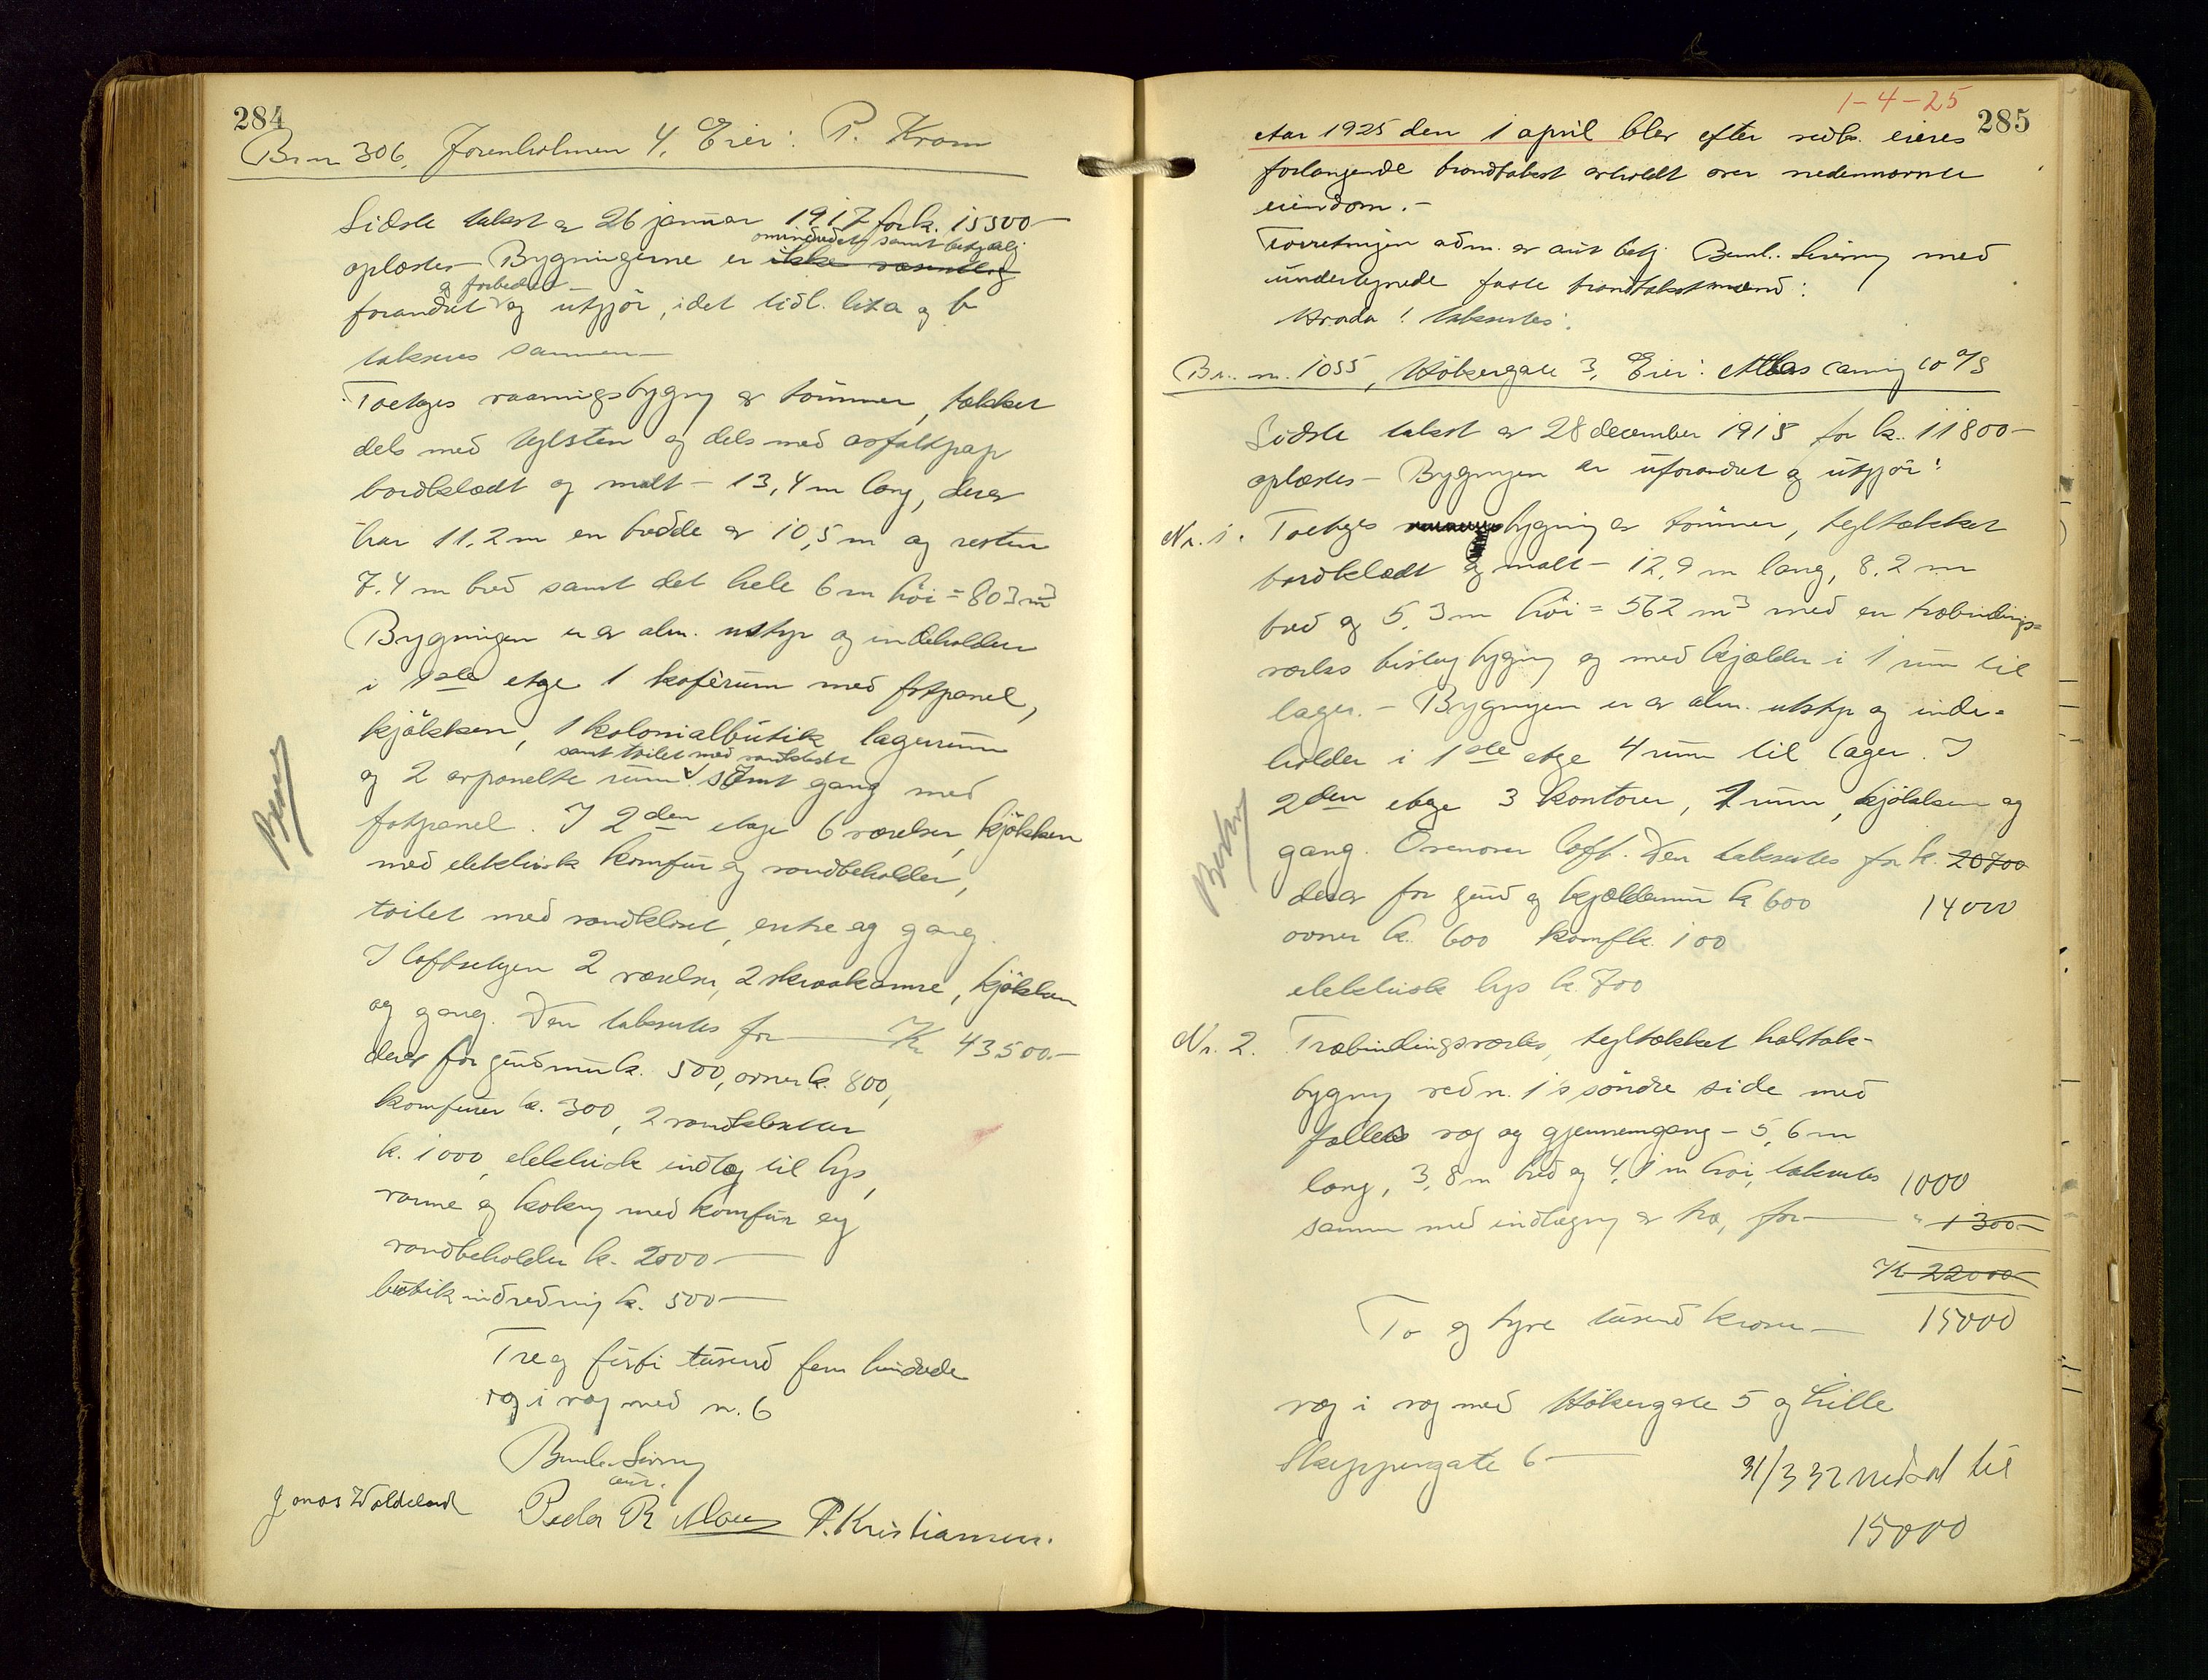 284
Br. nr. 306, Jorenholmen 4, Eier: P. Kram
Sidste takst av 26 januar 1917 for k. 15500—
omindredet samt betydelig
oplæstes — Bygningerne er ikke væsentlig
og forbedret
forandret og utgjör, idet tidl. lit a og b
takseres sammen—
Toetages vaaningsbygng av tömmer, tækket
dels med teglsten og dels med asfaltpap
bordklædt og malt — 13,4 m lang, derav
har 11.2 m en bredde av 10,5 m og resten
7.4 m bred samt det hele 6 m höi = 803 m³
Bygningen er av alm. utstyr og indeholder
i 1ste etage 1 kaférum med fotpanel,
kjökken, 1 kolonialbutik lagerrum
samt toilet med vandklosett
og 2 avpanelte rum samt gang med
fotpanel. I 2den etage 6 værelser, kjökken
med elektrisk komfur og vandbeholder,
toilet med vandkloset, entre og gang.
I loftsetagen 2 værelser, 2 skraakamre, kjökken
og gang. Den taksertes for — Kr 43500.—
derav for grundmur k. 500, ovner k. 800,
komfurer k. 300, 2 vandklosetter
k. 1000, elektrisk indlæg til lys,
varme og kokng med komfur og
vandbeholder k. 2000—
butikindredning k. 500—
Tre og förti tusend fem hundrede
væg i væg med nr. 6
Beny
Jonas Waldeland
aut.
Peder R P. Kristiansen.
1-4-25
285
Aar 1925 den 1 april blev efter vedk. eieres
forlangende brandtakst avholdt over nedennævnte
eiendom.—
Forretningen adm. av aut. betj. med
undertegnede faste brandtakstmænd:
Hvoda! taksertes:
Br. nr. 1055, Hökergate 3, Eier: Atlas caning co A/S
Sidste takst av 28 december 1915 for k. 11800—
oplæstes — Bygngen er uforandret og utgjör:
Nr. 1. Toetages bygning av tömmer, tegltækket
bordklædt og malt — 12,9 m lang, 8.2 m
bred og 5.3 m höi = 562 m³ med en træbindings-
verks bislagbygng og med kjælder i 1 rum til
lager. — Bygngen er av alm. utstyr og inde-
holder i 1ste etage 4 rum til lager. I
2den etage 3 kontorer, 1 rum, kjökken og
gang. Ovenover loft. Den taksertes for k. 20700
derav for grund og kjældermur k 600 14000
ovner k. 600 komf k. 100
elektrisk lys k. 700
Nr. 2. Træbindingsverks, tegltækket halvtak-
bygng ved nr. 1's söndre side med
fælles væg og gjennemgang — 5,6 m
lang, 3,8 m bred og 4,1 m höi, taksertes 1000
samen med indlægng av træ, for — " 1300—
Kr 22000
To og tyve tusend kroner — 15000
væg i væg med Hökergate 5 og Lille
Skippergate 6—
31/3 32 nedsat til
15000